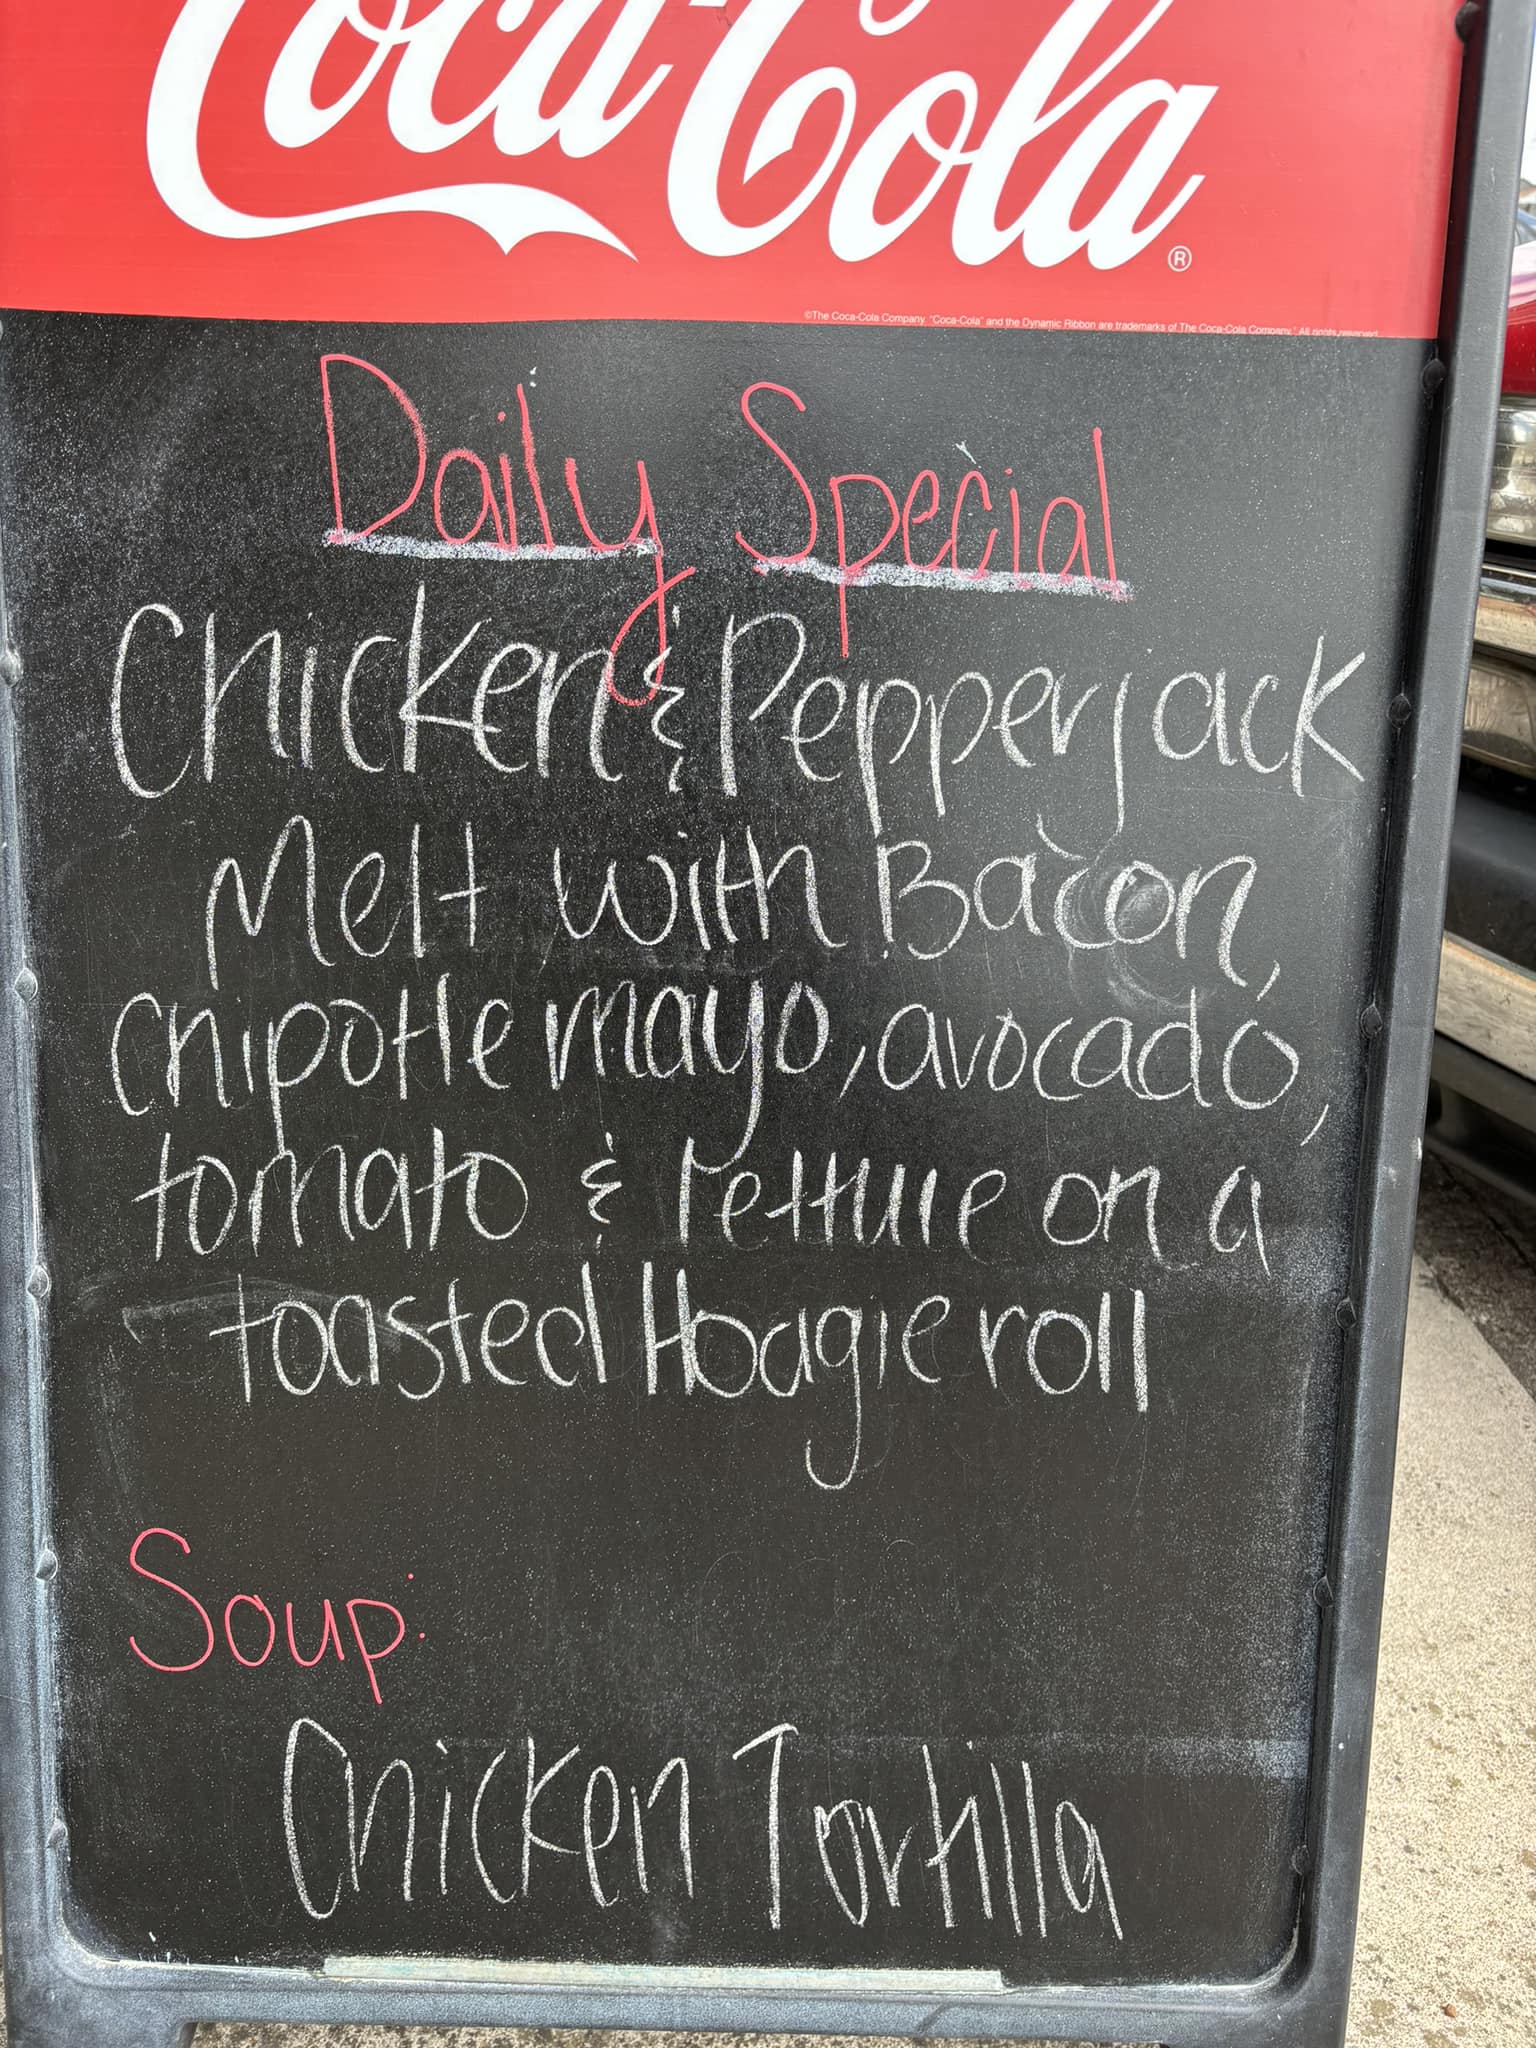 Coca-Cola®
©The Coca-Cola Company. "Coca-Cola" and the Dynamic Ribbon are trademarks of The Coca-Cola Company. All rights reserved.
Daily Special
Chicken & Pepperjack
Melt with Bacon,
Chipotle mayo, avocado,
tomato & lettuce on a
toasted Hoagie roll
Soup:
Chicken Tortilla